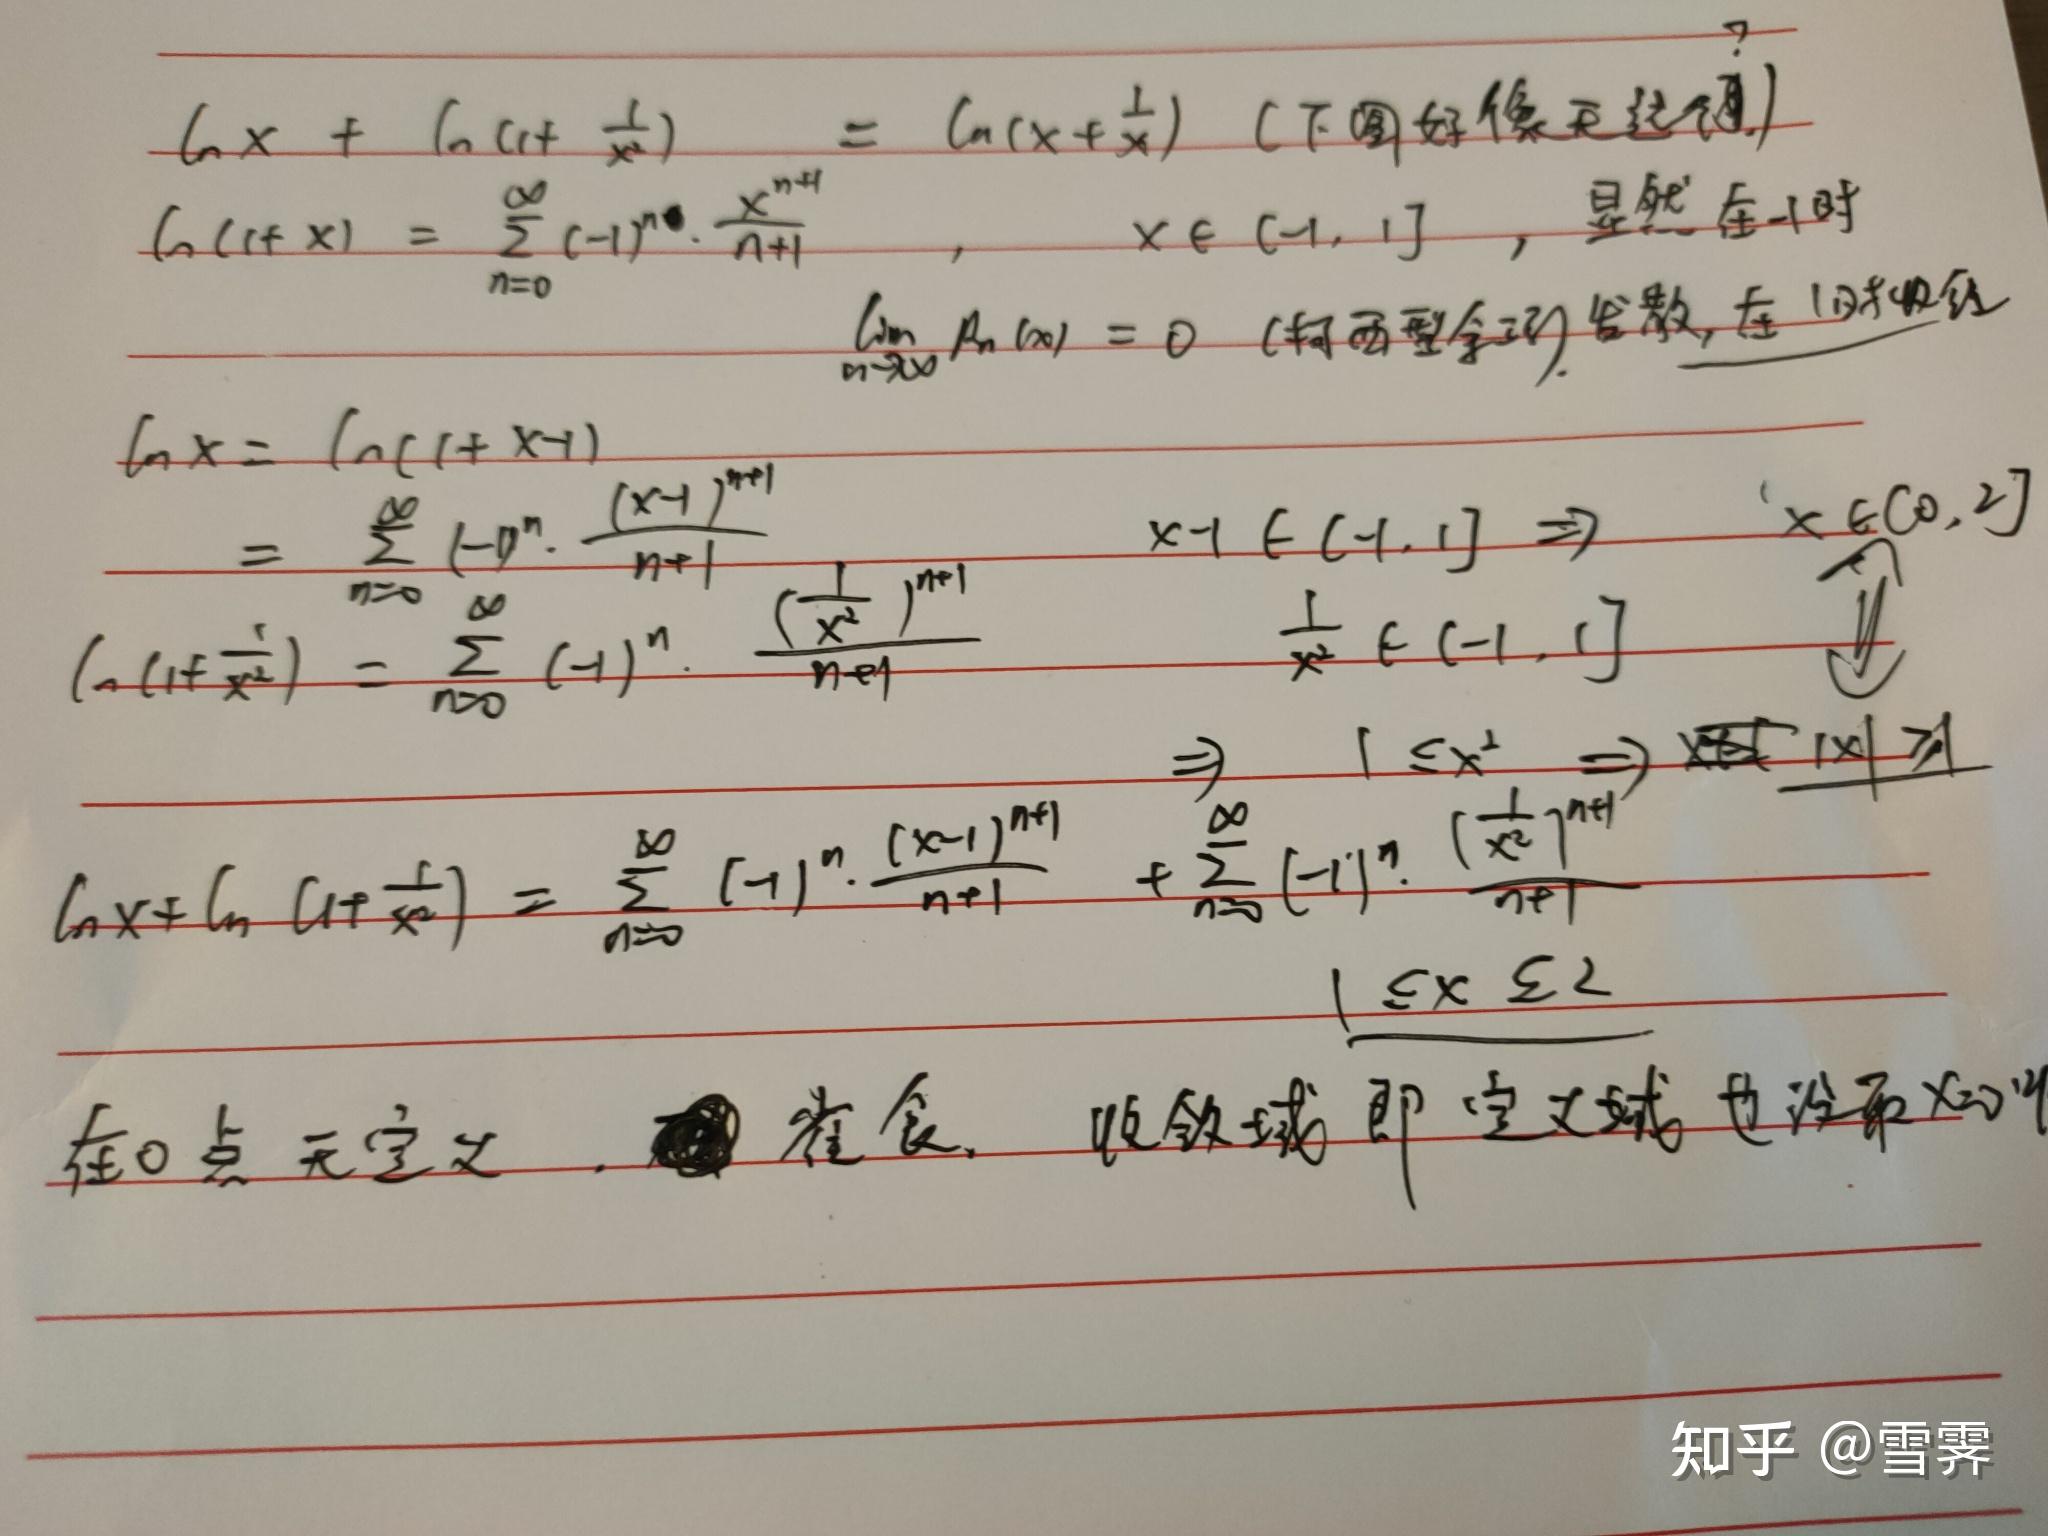 ln x + ln(1+ 1/x²) = ln(x+ 1/x) (下图好像无法 ?)
ln(1+x) = ∑_{n=0}^{∞} (-1)^n · x^{n+1}/(n+1) , x ∈ (-1, 1] , 显然在-1时
lim_{n→∞} Rn(x) = 0 (柯西型余项) 发散, 在1时收敛
ln x = ln(1+x-1)
= ∑_{n=0}^{∞} (-1)^n · (x-1)^{n+1}/(n+1) x-1 ∈ (-1, 1] ⇒ x ∈ (0, 2]
ln(1+ 1/x²) = ∑_{n=0}^{∞} (-1)^n · (1/x²)^{n+1}/(n+1) 1/x² ∈ (-1, 1]
⇒ 1 ≤ x² ⇒ |x| ≥ 1
ln x + ln(1+ 1/x²) = ∑_{n=0}^{∞} (-1)^n · (x-1)^{n+1}/(n+1) + ∑_{n=0}^{∞} (-1)^n · (1/x²)^{n+1}/(n+1)
1 ≤ x ≤ 2
在0点无定义. 雀食. 收敛域即定义域也没有x=0
知乎 @雪霁